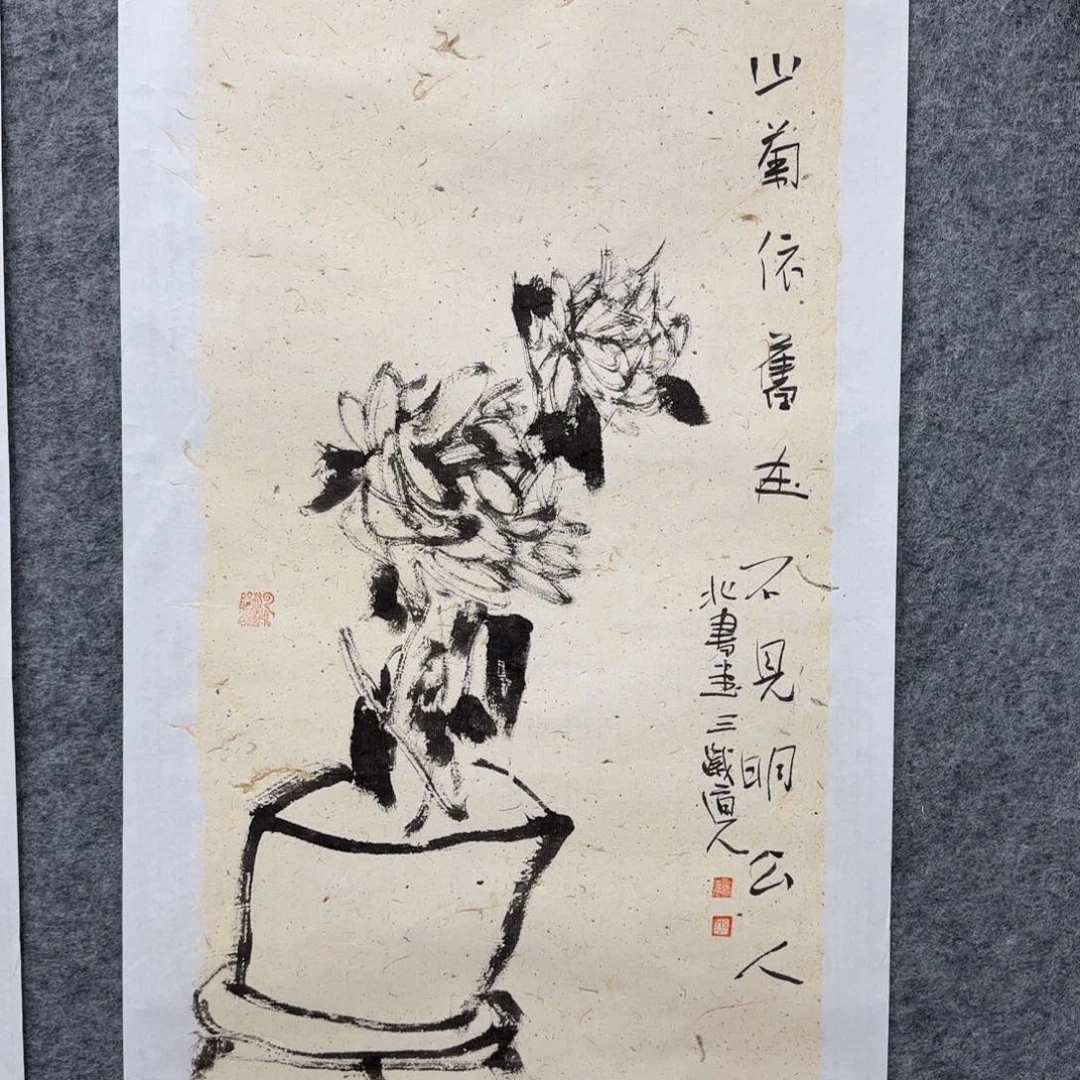 山菊依舊在不見明公人
北書畫三歲道人